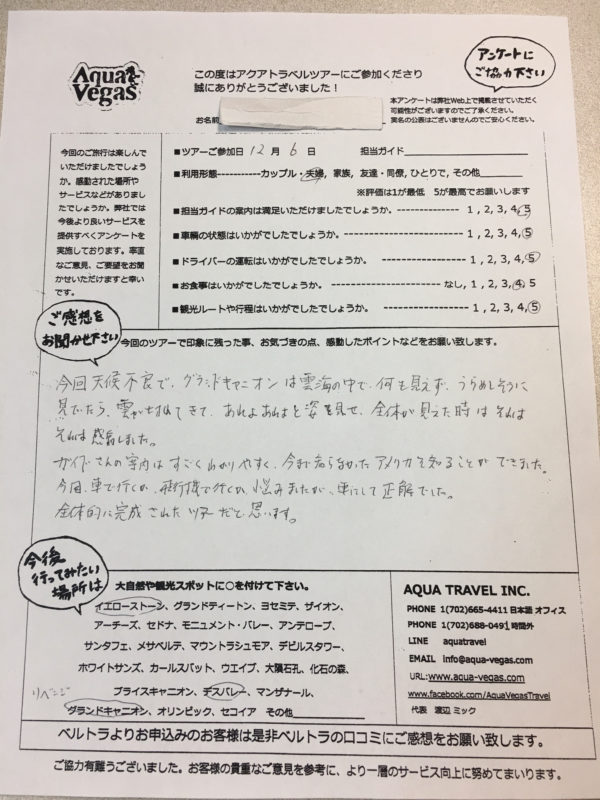 Aqua Vegas
この度はアクアトラベルツアーにご参加くださり
誠にありがとうございました！
アンケートに
ご協力下さい
本アンケートは弊社Web上で掲載させていただく
可能性がございますのでご了承ください。
実名の公表はございませんのでご安心ください。
お名前
今回のご旅行は楽しんで
いただけましたでしょう
か。感動された場所や
サービスなどがありまし
たでしょうか。弊社では
今後より良いサービスを
提供すべくアンケートを
実施しております。率直
なご意見、ご要望をお聞
かせいただけますと幸い
です。
■ツアーご参加日 12 月 6 日 担当ガイド
■利用形態-----------カップル・夫婦, 家族, 友達・同僚, ひとりで, その他
※評価は1が最低 5が最高でお願いします
■担当ガイドの案内は満足いただけましたでしょうか。-------------- 1 , 2, 3, 4, 5
■車輌の状態はいかがでしたでしょうか。-------------------------- 1 , 2, 3, 4, 5
■ドライバーの運転はいかがでしたでしょうか。-------------------- 1 , 2, 3, 4, 5
■お食事はいかがでしたでしょうか。------------------------ なし, 1, 2, 3, 4, 5
■観光ルートや行程はいかがでしたでしょうか。-------------------- 1 , 2, 3, 4, 5
ご感想を
お聞かせ下さい
今回のツアーで印象に残った事、お気づきの点、感動したポイントなどをお願い致します。
今回天候不良で、グランドキャニオンは雲海の中で、何も見えず、うらめしそうに
見ていたら、雲が切れてきて、あれよあれよと姿を見せ、全体が見えた時はそれは
それは感動しました。
ガイドさんの案内はすごくわかりやすく、今まで知らなかったアメリカを知ることができました。
今回、車で行くか、飛行機で行くか、悩みましたが、車にして正解でした。
全体的に完成されたツアーだと思います。
今後
行ってみたい
場所は
大自然や観光スポットに○を付けて下さい。
イエローストーン、グランドティートン、ヨセミテ、ザイオン、
アーチーズ、セドナ、モニュメント・バレー、アンテロープ、
サンタフェ、メサベルデ、マウントラシュモア、デビルスタワー、
ホワイトサンズ、カールスバット、ウエイブ、大隕石孔、化石の森、
ブライスキャニオン、デスバレー、マンザナール、
リベンジ
グランドキャニオン、オリンピック、セコイア その他
AQUA TRAVEL INC.
PHONE 1(702)665-4411 日本語 オフィス
PHONE 1(702)688-0491 時間外
LINE aquatravel
EMAIL info@aqua-vegas.com
URL:www.aqua-vegas.com
www.facebook.com/AquaVegasTravel
代表 渡辺 ミック
ベルトラよりお申込みのお客様は是非ベルトラの口コミにご感想をお願い致します。
ご協力有難うございました。お客様の貴重なご意見を参考に、より一層のサービス向上に努めてまいります。